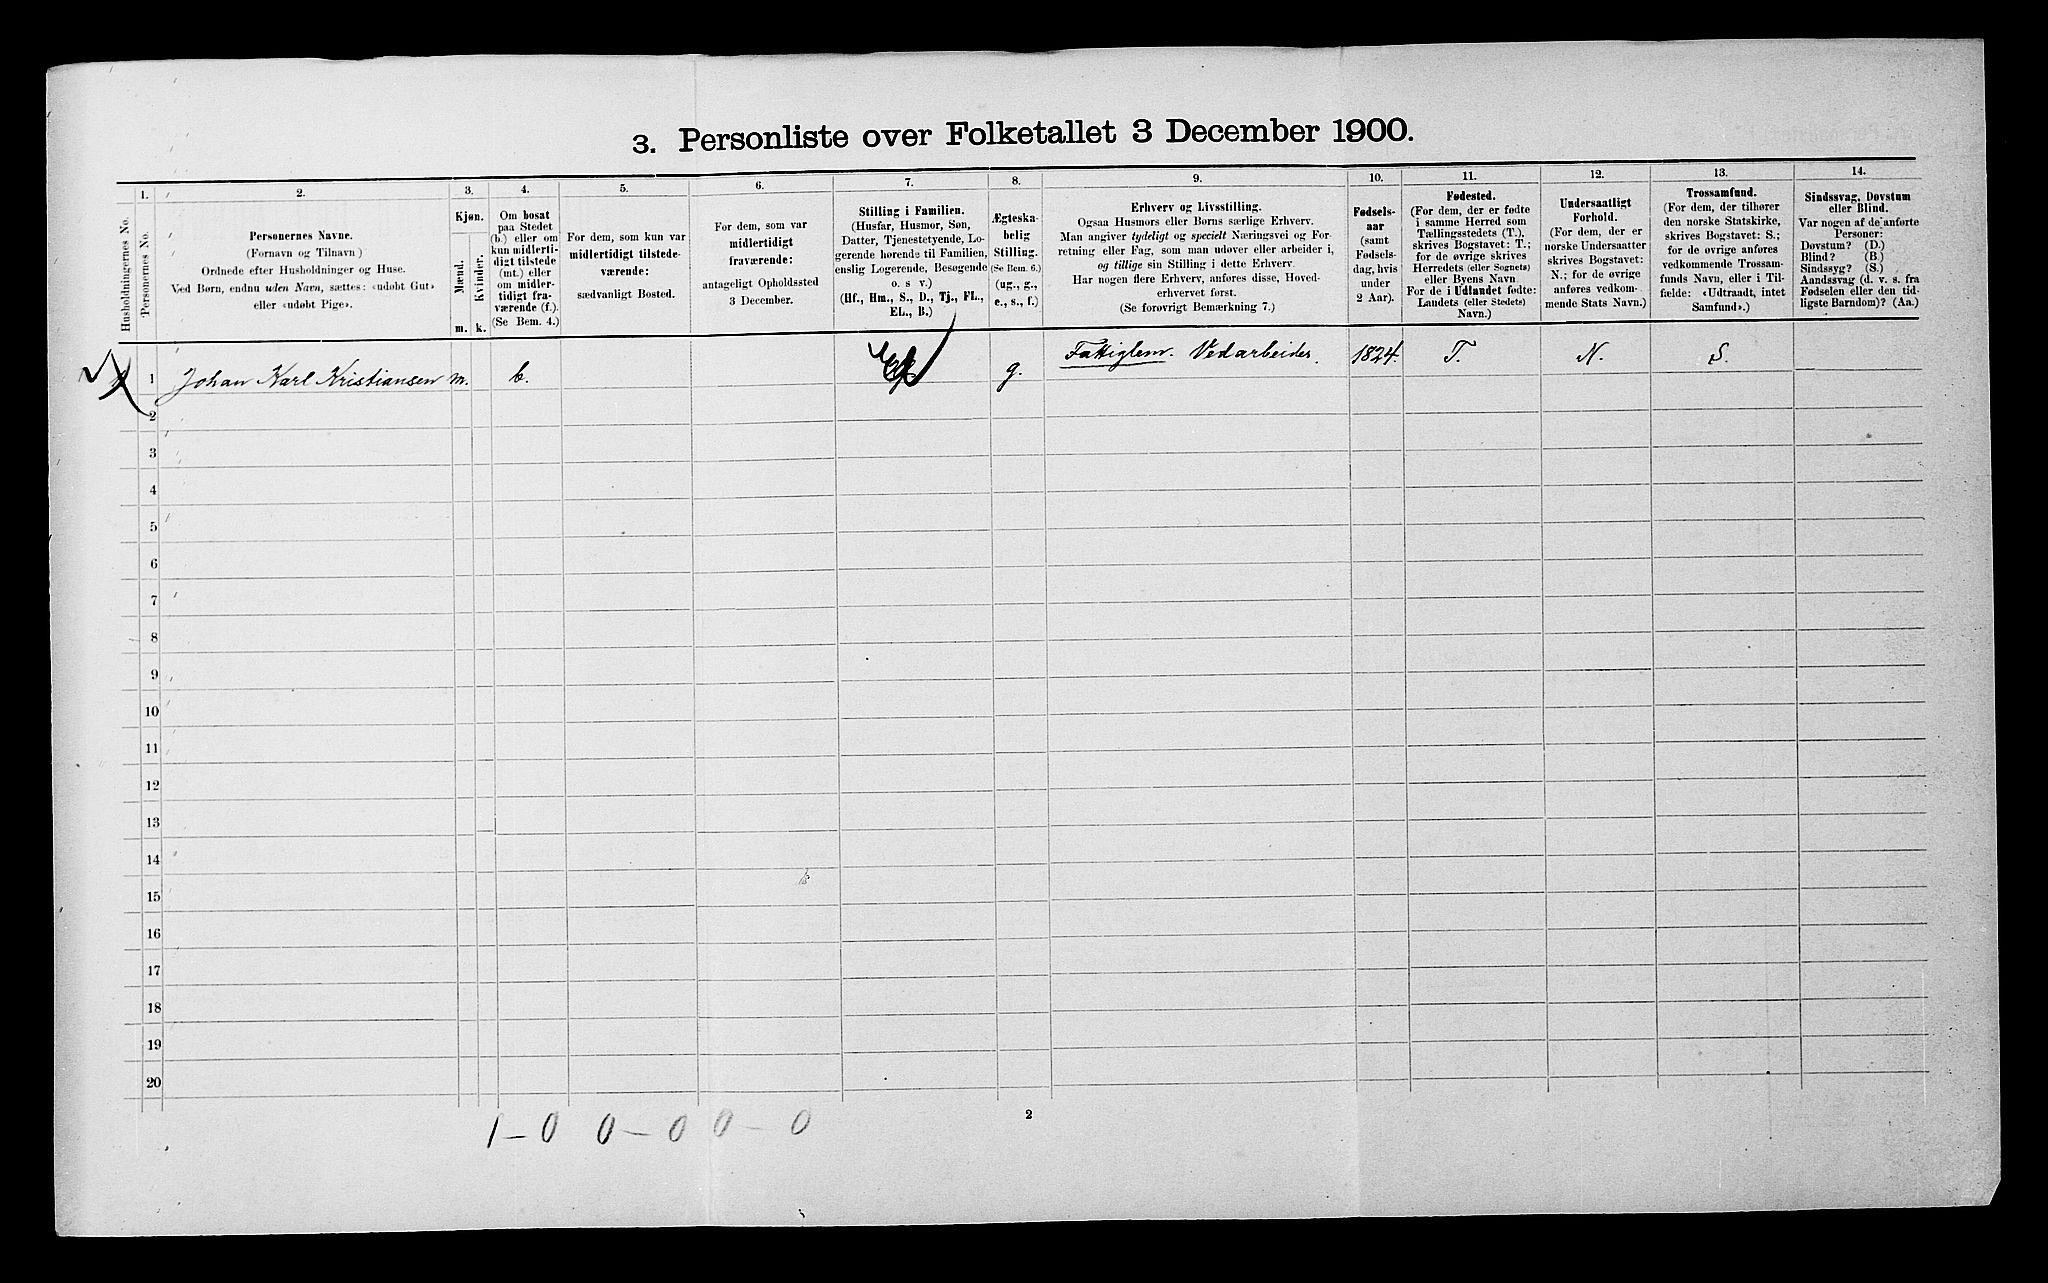 3. Personliste over Folketallet 3 December 1900.
1. 2. 3. 4. 5. 6. 7. 8. 9. 10. 11. 12. 13. 14.
Husholdningernes No.
Personernes No.
Personernes Navne.
(Fornavn og Tilnavn)
Ordnede efter Husholdninger og Huse.
Ved Børn, endnu uden Navn, sættes: «udøbt Gut»
eller «udøbt Pige».
Kjøn.
Mænd.
Kvinder.
m. k.
Om bosat
paa Stedet
(b.) eller om
kun midlerti-
digt tilstede
(mt.) eller
om midler-
tidigt fra-
værende (f.).
(Se Bem. 4.)
For dem, som kun var
midlertidigt tilstede-
værende:
sædvanligt Bosted.
For dem, som var
midlertidigt
fraværende:
antageligt Opholdssted
3 December.
Stilling i Familien.
(Husfar, Husmor, Søn,
Datter, Tjenestetyende, Lo-
gerende hørende til Familien,
enslig Logerende, Besøgende
o. s v.)
(Hf., Hm., S., D., Tj., FL.,
EL., B.)
Ægteska-
belig
Stilling.
(Se Bem. 6.)
(ug., g.,
e., s., f.)
Erhverv og Livsstilling.
Ogsaa Husmors eller Børns særlige Erhverv.
Man angiver tydeligt og specielt Næringsvei og For-
retning eller Fag, som man udøver eller arbeider i,
og tillige sin Stilling i dette Erhverv.
Har nogen flere Erhverv, anføres disse, Hoved-
erhvervet først.
(Se forøvrigt Bemærkning 7.)
Fødsels-
aar
(samt
Fødsels-
dag, hvis
under
2 Aar).
Fødested.
(For dem, der er fødte
i samme Herred som
Tællingsstedets (T.),
skrives Bogstavet: T.;
for de øvrige skrives
Herredets (eller Sognets)
eller Byens Navn
For de i Udlandet fødte:
Landets (eller Stedets)
Navn.)
Undersaatligt
Forhold.
(For dem, der er
norske Undersaatter
skrives Bogstavet:
N.; for de øvrige
anføres vedkom-
mende Stats Navn.)
Trossamfund.
(For dem, der tilhører
den norske Statskirke,
skrives Bogstavet: S.;
for de øvrige anføres
vedkommende Trossam-
funds Navn, eller i Til-
fælde: «Udtraadt, intet
Samfund».)
Sindssvag, Døvstum
eller Blind.
Var nogen af de anførte
Personer:
Døvstum? (D.)
Blind? (B.)
Sindssyg? (S.)
Aandssvag (d. v. s. fra
Fødselen eller den tid-
ligste Barndom)? (Aa.)
1 Johan Karl Kristiansen m. b. g. Fattiglem. Vedarbeider. 1824. T. N. S.
2
3
4
5
6
7
8
9
10
11
12
13
14
15
16
17
18
19
20
1 – 0 0 – 0 0 – 0
2